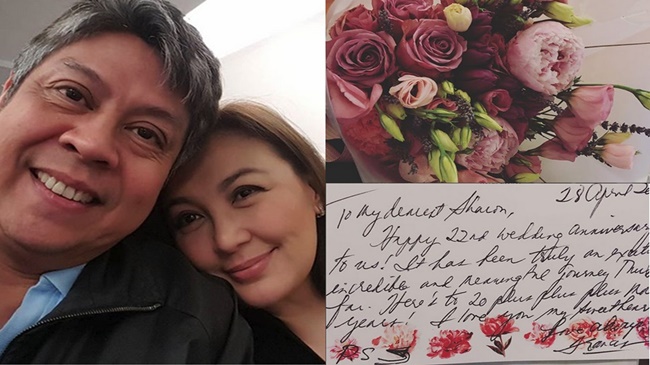 28 April 20
To my dearest Sharon,
Happy 22nd wedding anniversar
to us! It has been truly an
incredible and meaningful journey thus
far. Here's to 20 plus plus plus
years! I love you my sweethear
Love always
Francis
P.S.